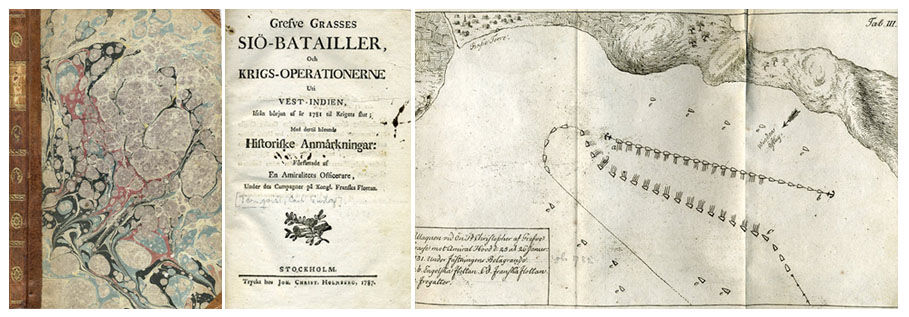 Grefve GRASSES
SIÖ-BATAILLER,
Och
KRIGS-OPERATIONERNE
Uti
VEST-INDIEN,
ifrån början af år 1781 til Krigets slut;
Med dertil hörande
Historiske Anmärkningar:
Författade af
En Amiralitets Officerare,
Under des Campagner på Kongl. Franska Flottan.
STOCKHOLM.
Tryckt hos JOH. CHRIST. HOLMBERG, 1787.
Tab. III.
Basse Terre.
vid Ön St Christopher af Grefve
mot Amiral Hood d. 25 ad 26 Januar.
Under fästningens Belagrande
b. Engelska flottan. franska flottan
fregatter.